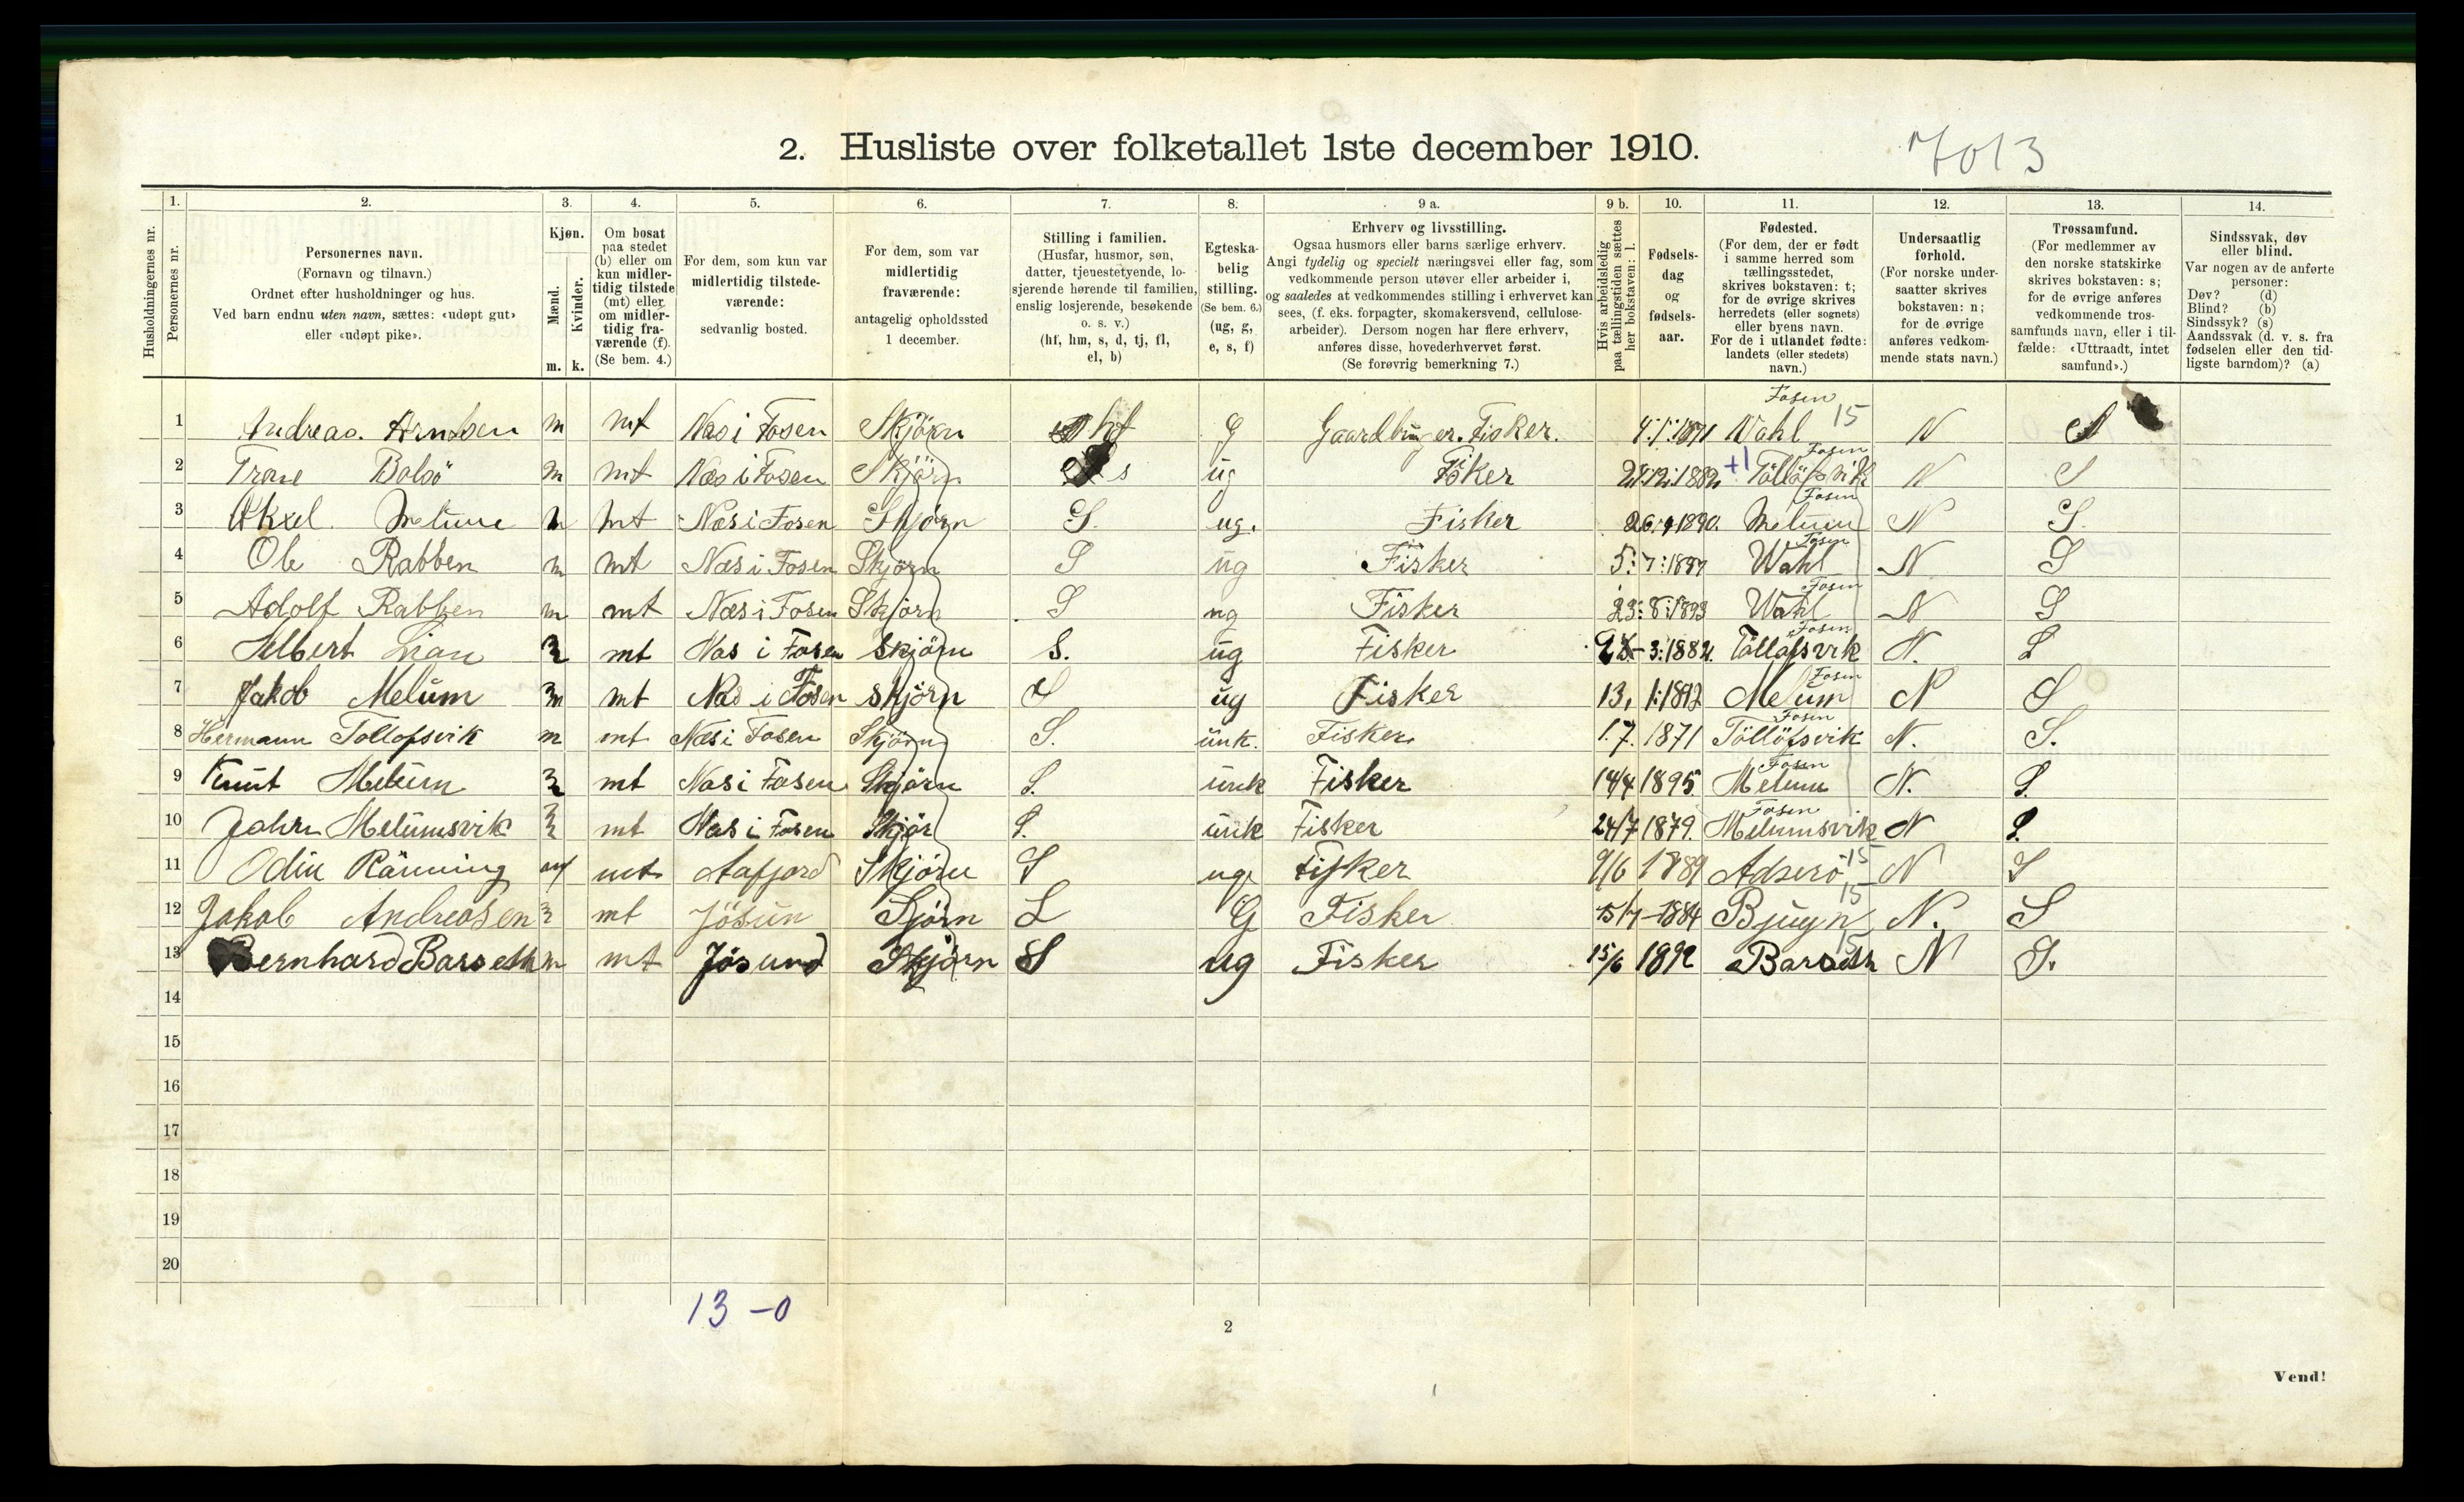 2. Husliste over folketallet 1ste december 1910.
7013
1. 2. 3. 4. 5. 6. 7. 8. 9 a. 9 b. 10. 11. 12. 13. 14.
Husholdningernes nr.
Personernes nr.
Personernes navn.
(Fornavn og tilnavn.)
Ordnet efter husholdninger og hus.
Ved barn endnu uten navn, sættes: «udøpt gut»
eller «udøpt pike».
Kjøn.
Mænd.
Kvinder.
m. k.
Om bosat
paa stedet
(b) eller om
kun midler-
tidig tilstede
(mt) eller
om midler-
tidig fra-
værende (f).
(Se bem. 4.)
For dem, som kun var
midlertidig tilstede-
værende:
sedvanlig bosted.
For dem, som var
midlertidig
fraværende:
antagelig opholdssted
1 december.
Stilling i familien.
(Husfar, husmor, søn,
datter, tjenestetyende, lo-
sjerende hørende til familien,
enslig losjerende, besøkende
o. s. v.)
(hf, hm, s, d, tj, fl,
el, b)
Egteska-
belig
stilling.
(Se bem. 6.)
(ug, g,
e, s, f)
Erhverv og livsstilling.
Ogsaa husmors eller barns særlige erhverv.
Angi tydelig og specielt næringsvei eller fag, som
vedkommende person utøver eller arbeider i,
og saaledes at vedkommendes stilling i erhvervet kan
sees, (f. eks. forpagter, skomakersvend, cellulose-
arbeider). Dersom nogen har flere erhverv,
anføres disse, hovederhvervet først.
(Se forøvrig bemerkning 7.)
Hvis arbeidsledig
paa tællingstiden sættes
her bokstaven: l.
Fødsels-
dag
og
fødsels-
aar.
Fødested.
(For dem, der er født
i samme herred som
tællingsstedet,
skrives bokstaven: t;
for de øvrige skrives
herredets (eller sognets)
eller byens navn.
For de i utlandet fødte:
landets (eller stedets)
navn.)
Undersaatlig
forhold.
(For norske under-
saatter skrives
bokstaven: n;
for de øvrige
anføres vedkom-
mende stats navn.)
Trossamfund.
(For medlemmer av
den norske statskirke
skrives bokstaven: s;
for de øvrige anføres
vedkommende tros-
samfunds navn, eller i til-
fælde: «Uttraadt, intet
samfund».)
Sindssvak, døv
eller blind.
Var nogen av de anførte
personer:
Døv? (d)
Blind? (b)
Sindssyk? (s)
Aandssvak (d. v. s. fra
fødselen eller den tid-
ligste barndom)? (a)
1 Andreas. Arntsen m mt Næs i Fosen Skjörn hf g Fisker. Fosen Wahl 15 N
2 Bolsö m mt Næs i Fosen Skjörn s ug Fisker +1 Fosen N S
3 Akxel Melum m mt Næs i Fosen Skjörn S. ug. Fisker 1890. Fosen Melum N S.
4 Ole Rabben m mt Næs i Fosen Skjörn S ug Fisker Fosen Wahl N S
5 Adolf Rabben m mt Næs i Fosen Skjörn S ug Fisker 23:8:1893 Fosen Wahl N S
6 m mt Næs i Fosen Skjörn S. ug Fisker Fosen Töllofsvik N. S
7 Jakob Melum m mt Næs i Fosen Skjörn S ug Fisker Fosen Melum N S
8 Hermann Tollofsvik m mt Næs i Fosen Skjörn S. unk. Fisker 1.7. 1871 Fosen Töllöfsvik N. S.
9 Knut Melum m mt Næs i Fosen Skjörn S. unk Fisker 14/4 1895 Fosen Melum N. S.
10 Johan Melumsvik m mt Næs i Fosen Skjör S. unk Fisker 24/7 1879. Fosen Melumsvik N S.
11 Odin Ränning m mt Aafjord Skjörn S ug. Fisker 9/6 1889 15 N S
12 Jakob Andreasen m mt Jösun Sjörn L G Fisker 1884 Bjugn 15 N. S
13 Bernhard Barseth m mt Jösund Skjörn S ug Fisker 15/6 1892 Barseth 15 N S.
14
15
16
17
18
19
20
13 – 0
2
Vend!